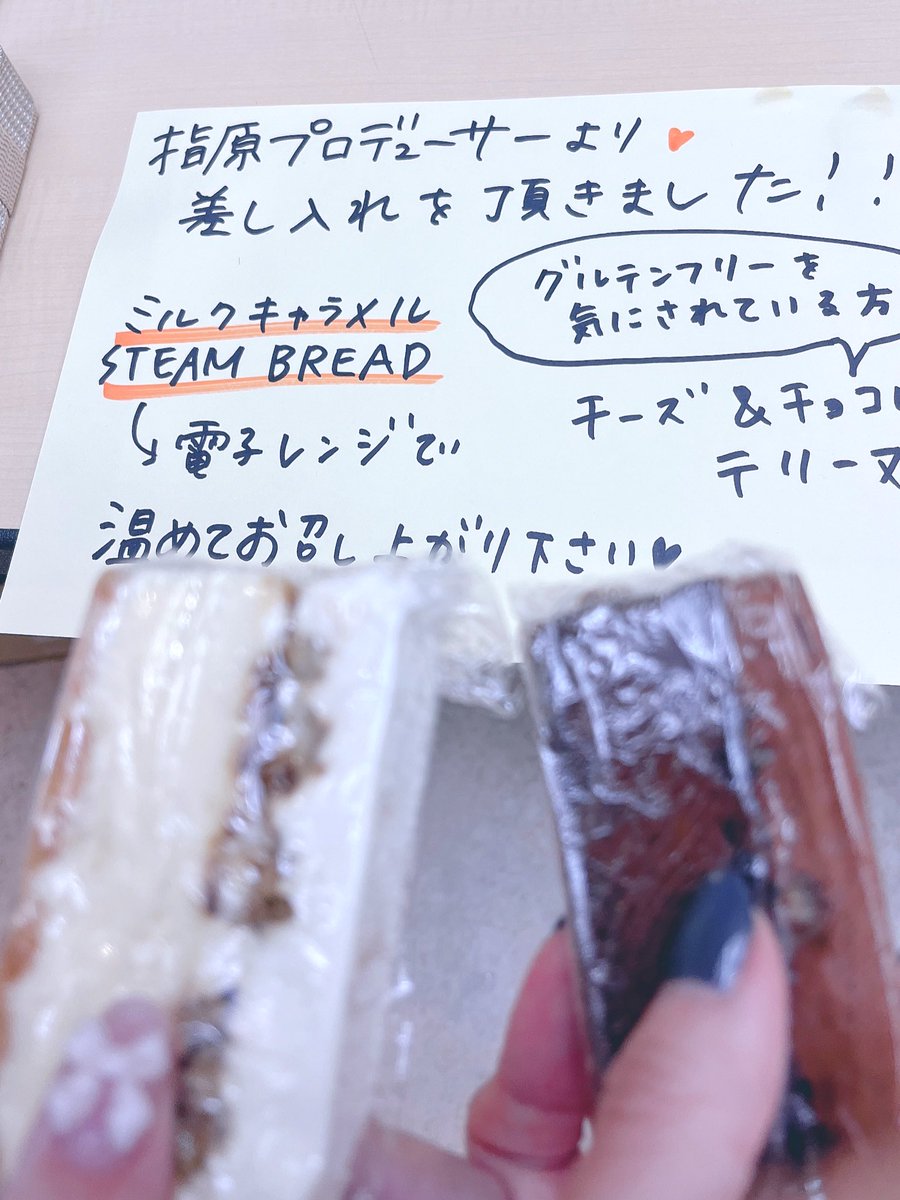 指原プロデューサーより
差し入れを頂きました!!
ミルクキャラメル
STEAM BREAD
電子レンジで
温めてお召し上がり下さい
グルテンフリーを
気にされている方
チーズ&チョコレ
テリーヌ